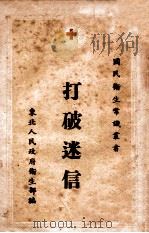 國民衛生常識叢書
打破迷信
東北人民政府衛生部編
www.tongbook.com